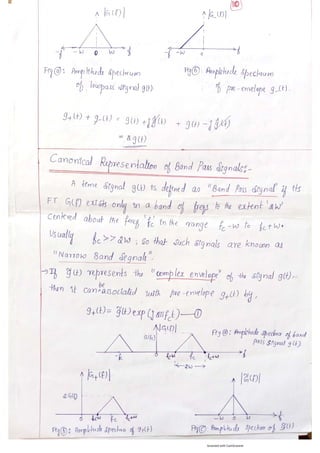 10
|G(f)|
|G_(f)|
-f -W 0 W f
-f -W 0 f
Fig ⓐ: Amplitude Spectrum of lowpass signal g(t)
Fig ⓑ Amplitude Spectrum of pre-envelope g_(t).
g+(t) + g_(t) = g(t) + j ĝ(t) + g(t) - j ĝ(t)
= 2g(t)
Canonical Representation of Band Pass Signals:-
A time signal g(t) is defined as "Band Pass Signal" if its
F.T G(f) exists only in a band of freqs to the extent '2W'
Centred about the freq 'fc' in the range fc-W to fc+W.
Usually fc >> 2W ; so that such signals are known as
"Narrow Band Signals".
→ If g̃(t) represents the "complex envelope" of the signal g(t).
then it can be associated with pre-envelope g+(t) by,
g+(t) = g̃(t) exp(j2πfct) — ①
|G(f)|
G(fc)
Fig ⓐ: Amplitude spectrum of band
pass signal g(t).
-fc 0 fc-W fc fc+W f
← 2W →
|G+(f)|
|G̃(f)|
2G(fc)
0 fc-W fc fc+W f
-W 0 W f
Fig ⓑ: Amplitude spectrum of g+(t)
Fig ⓒ Amplitude spectrum of g̃(t)
Scanned with CamScanner